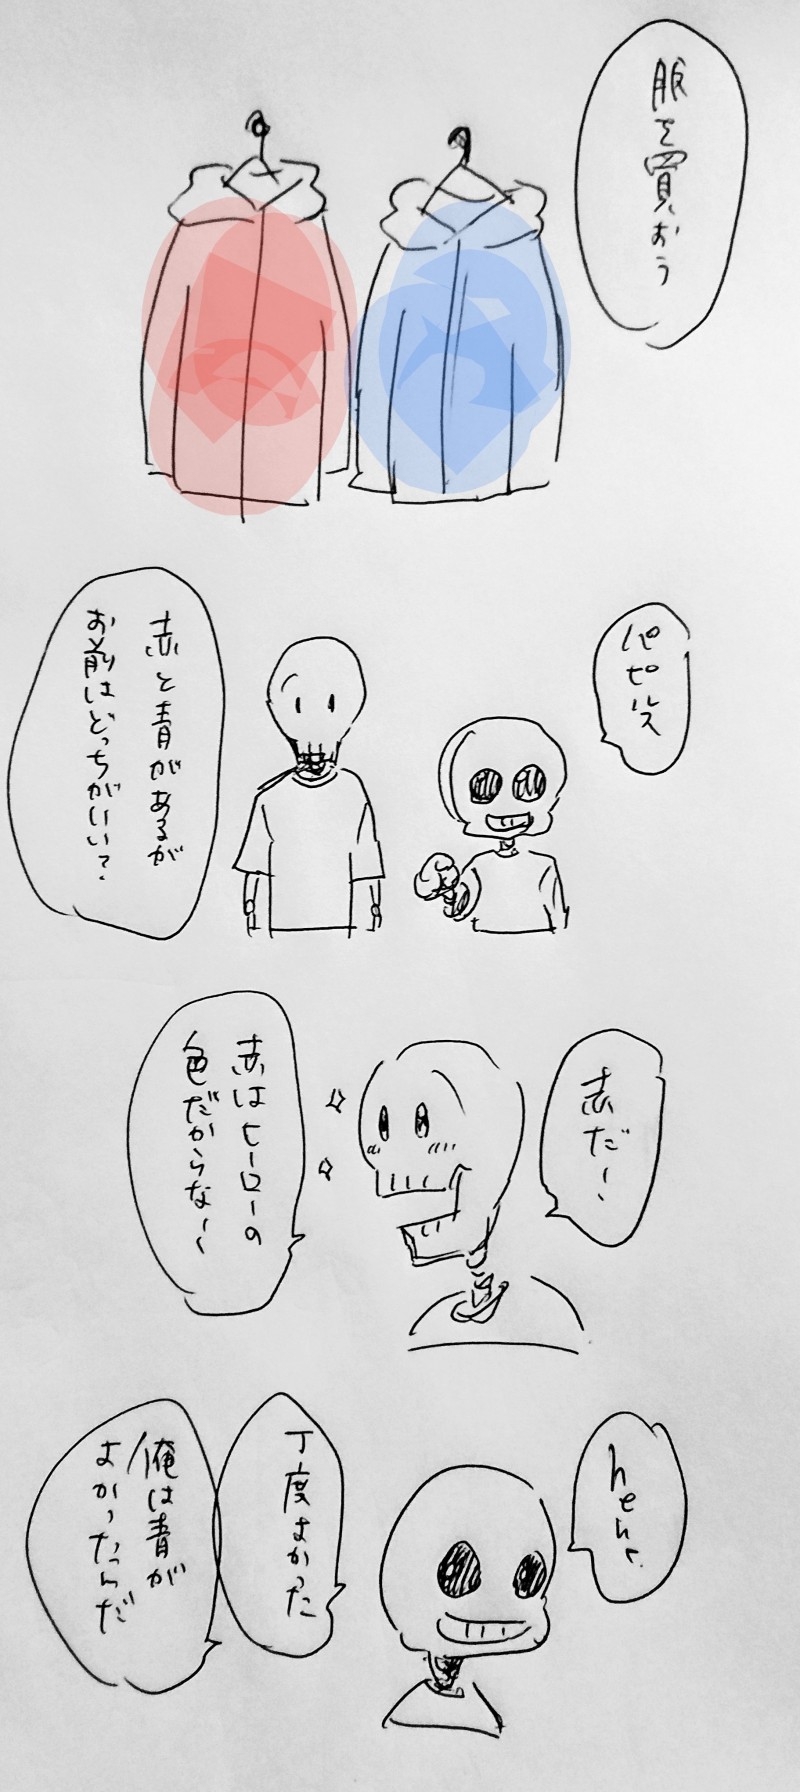 服を買おう
パピルス
赤と青があるが
お前はどっちがいい?
赤だー!
赤はヒーローの
色だからな!
heh
丁度よかった
俺は青が
よかったんだ